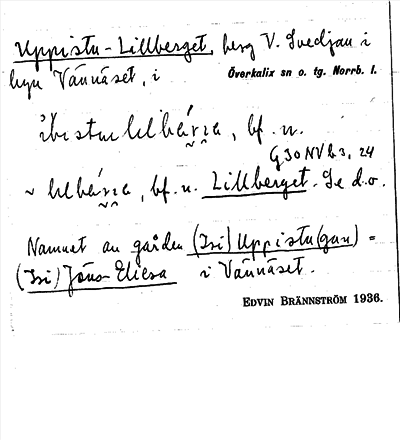 Uppistu-Lillberget, berg V. Svedjan i
byn Vännäset, i Överkalix sn o. tg. Norrb. l.
bf. n.
G30NV b 3, 24
~ bf. n. Lillberget. Se d.o.
Namnet av gården (Isi) Uppistu(gun) =
(Isi) Jöns-Eliesa i Vännäset.
EDVIN BRÄNNSTRÖM 1936.